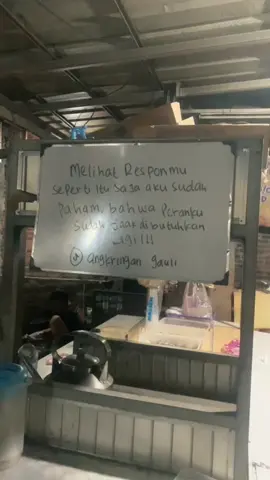 Melihat Responmu
seperti itu saja aku sudah
Paham, bahwa Peranku
sudah tidak dibutuhkan
lagi!!!
angkringan gauli